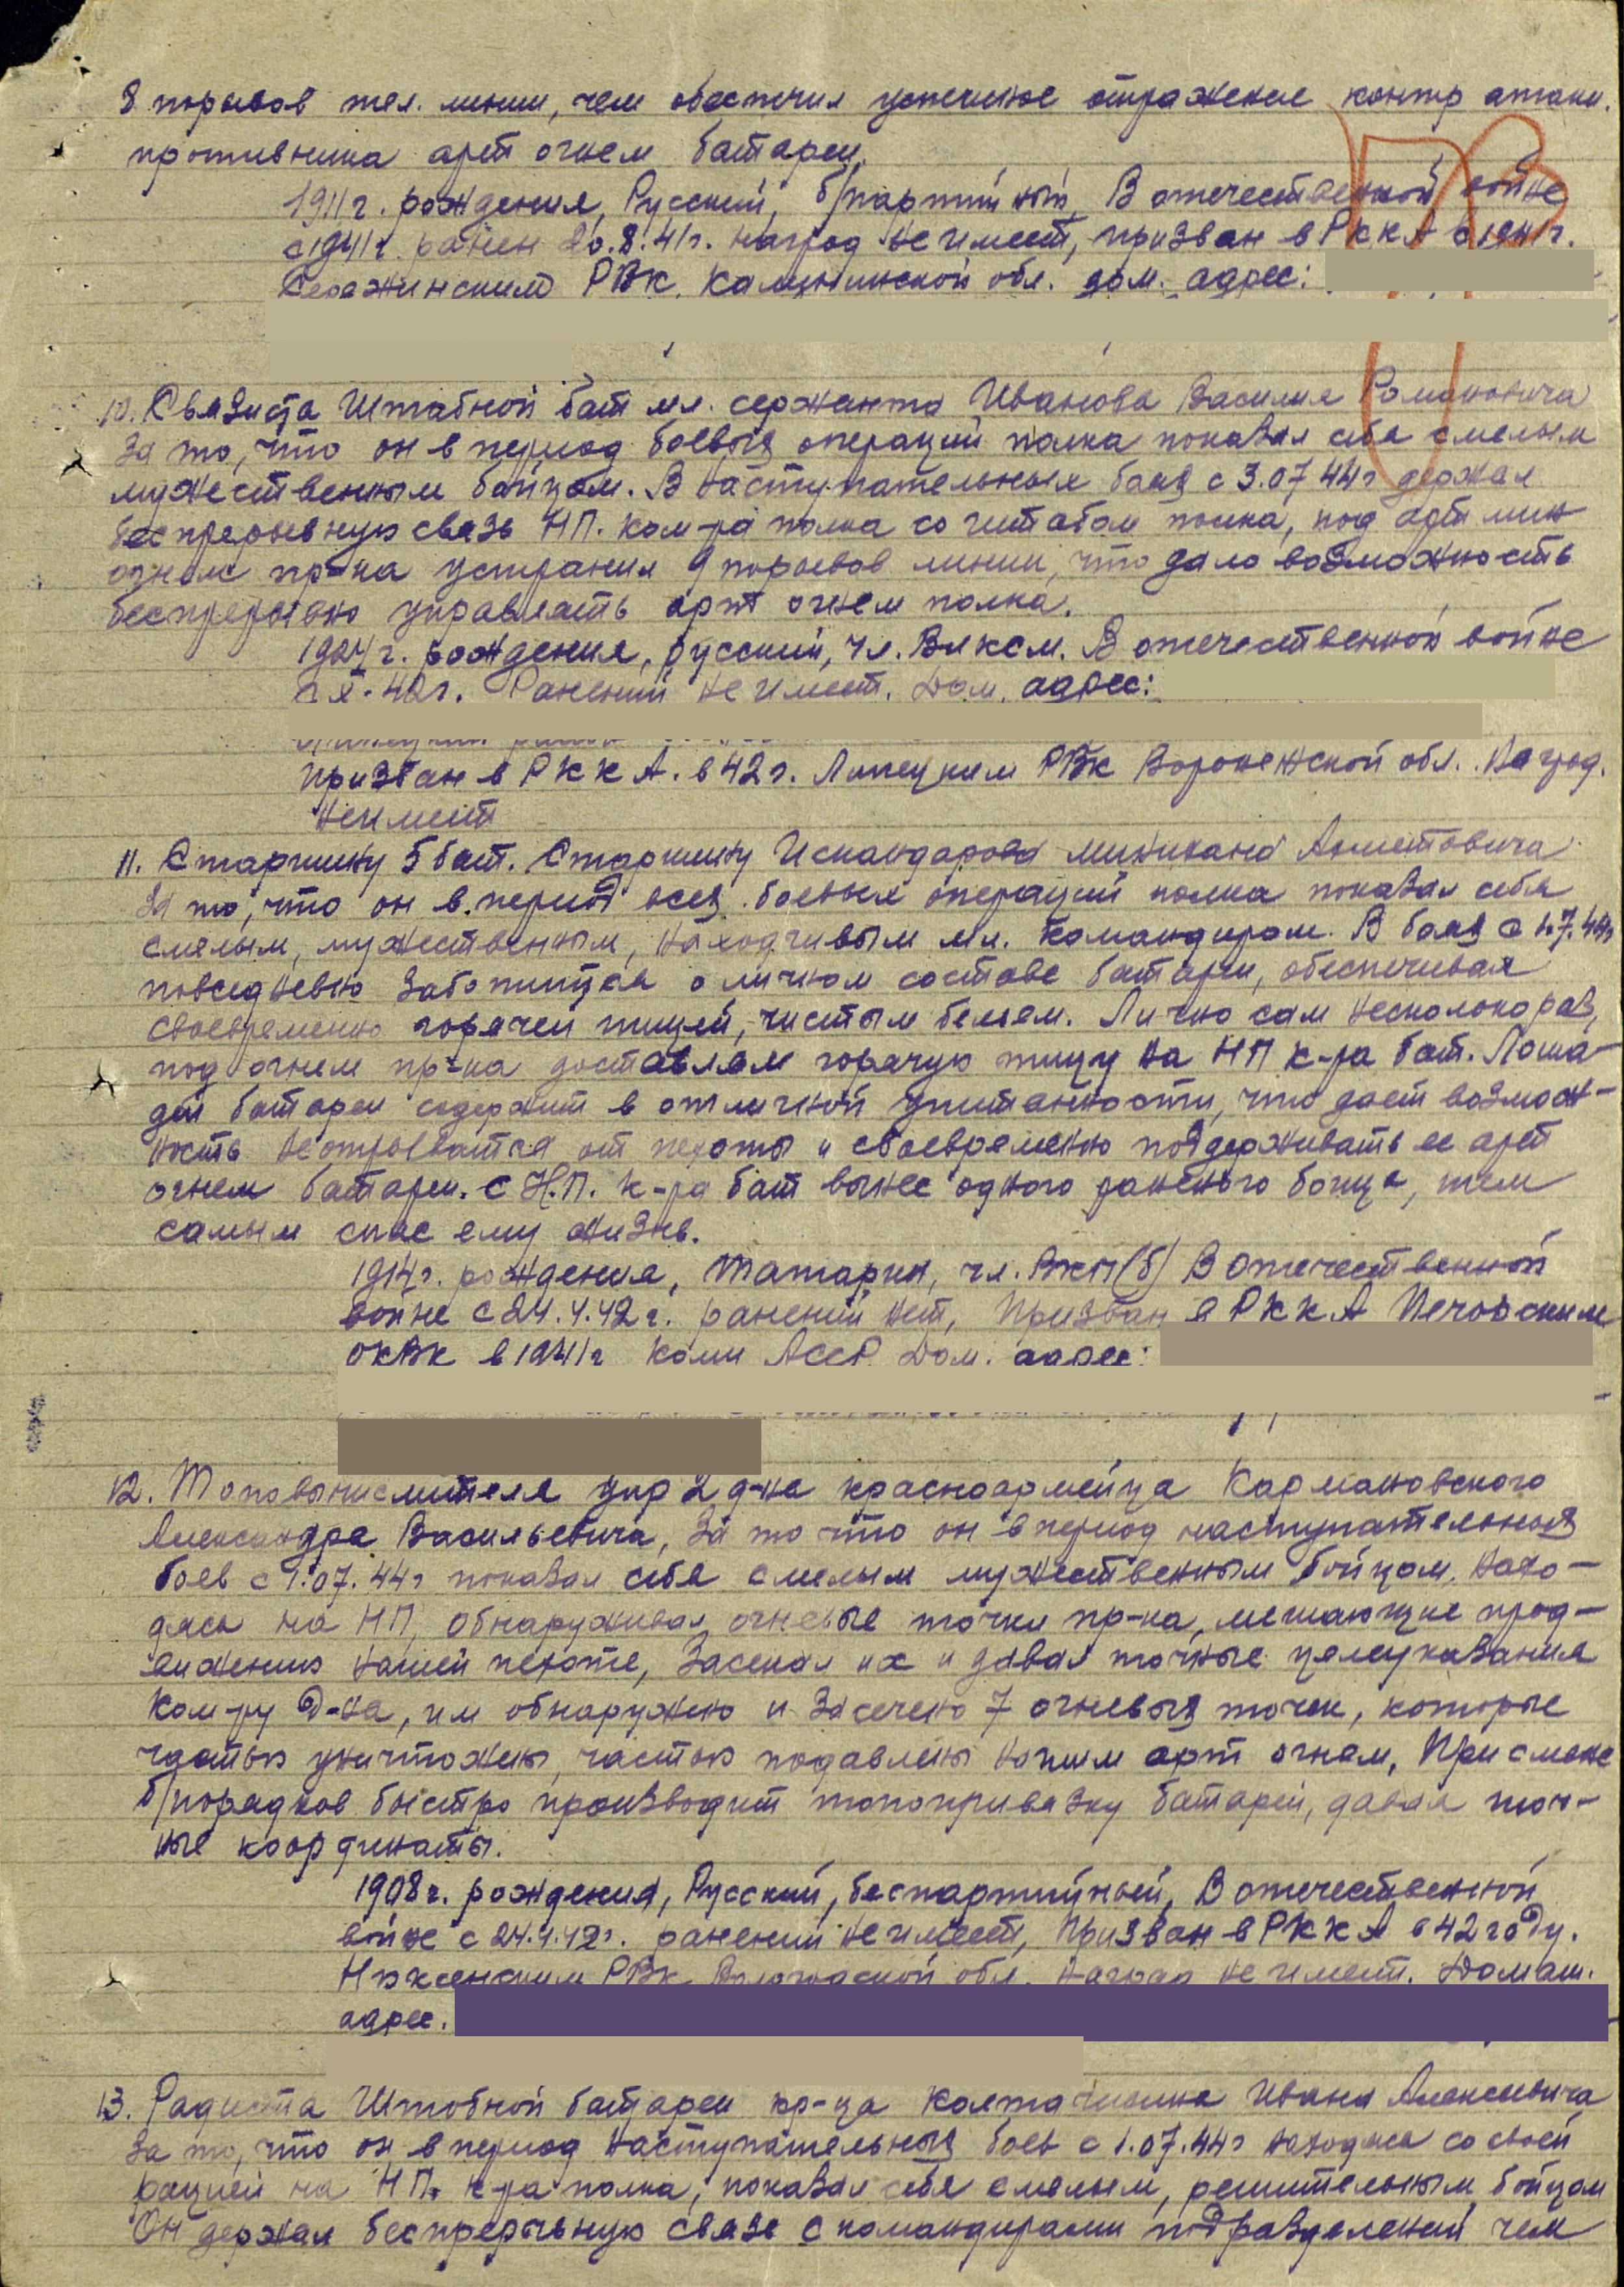 8 порывов тел. линии, чем обеспечил успешное отражение контр атаки
противника арт огнем батареи.
1911г. рождения, Русский, б/партийный, В отечественной войне
с 1941г. ранен 20.8.41г. наград не имеет, призван в РККА в 1941г.
РВК. Калининской обл. дом. адрес:
10. Связиста Штабной бат мл. сержанта Иванова Василия Романовича
За то, что он в период боевых операций полка показал себя смелым
мужественным бойцом. В наступательных боях с 3.07 44г держал
беспрерывную связь НП. ком-ра полка со штабом полка, под арт мин
огнем пр-ка устранил 9 порывов линии, что дало возможность
беспрерывно управлять арт огнем полка.
1924г. рождения, русский, чл. Влксм. В отечественной войне
с X-42г. Ранений не имеет. Дом. адрес:
призван в РККА. в 42г. Липецким РВк Воронежской обл. Наград.
не имеет
11. Старшину 5 бат. Старшину Искандарова Минихана Ахметовича
За то, что он в период всех боевых операций полка показал себя
смелым, мужественным, находчивым мл. командиром. В боях с 1.7.44г
повседневно заботится о личном составе батареи, обеспечивая
своевременно горячей пищей, чистым бельем. Лично сам несколько раз,
под огнем пр-ка доставлял горячую пищу на НП к-ра бат. Лоша-
дей батареи содержит в отличной упитанности, что дает возмож-
ность не отрываться от пехоты и своевременно поддерживать ее арт
огнем батареи. с Н.П. к-ра бат вынес одного раненого бойца, тем
самым спас ему жизнь.
1914г. рождения, Татарин, чл. Вкп(б) В Отечественной
войне с 24.4.42г. ранений нет, Призван в РККА Печорским
ОКВК в 1941г Коми АССР. Дом. адрес:
12. Топовычислителя упр 2 д-на красноармейца Кармановского
Александра Васильевича, За то что он в период наступательных
боев с 1.07.44г показал себя смелым мужественным бойцом. Нахо-
дясь на НП, обнаруживал огневые точки пр-ка, мешающие прод-
вижению нашей пехоте, Засекал их и давал точные целеуказания
Ком-ру д-на, им обнаружено и засечено 7 огневых точек, которые
частью уничтожены, частью подавлены нашим арт огнем, При смене
б/порядков быстро производит топопривязку батарей, давая точ-
ные координаты.
1908г. рождения, Русский, беспартийный, В отечественной
войне с 24.4.42г. ранений не имеет, Призван в РККА в 42 году.
Нюксенским РВк Вологодской обл. наград не имеет. Домаш.
адрес.
13. Радиста Штабной батареи кр-ца Ивана Алексеевича
За то, что он в период наступательных боев с 1.07.44г находясь со своей
рацией на НП. к-ра полка, показал себя смелым, решительным бойцом
Он держал беспрерывную связь с командирами подразделений чем